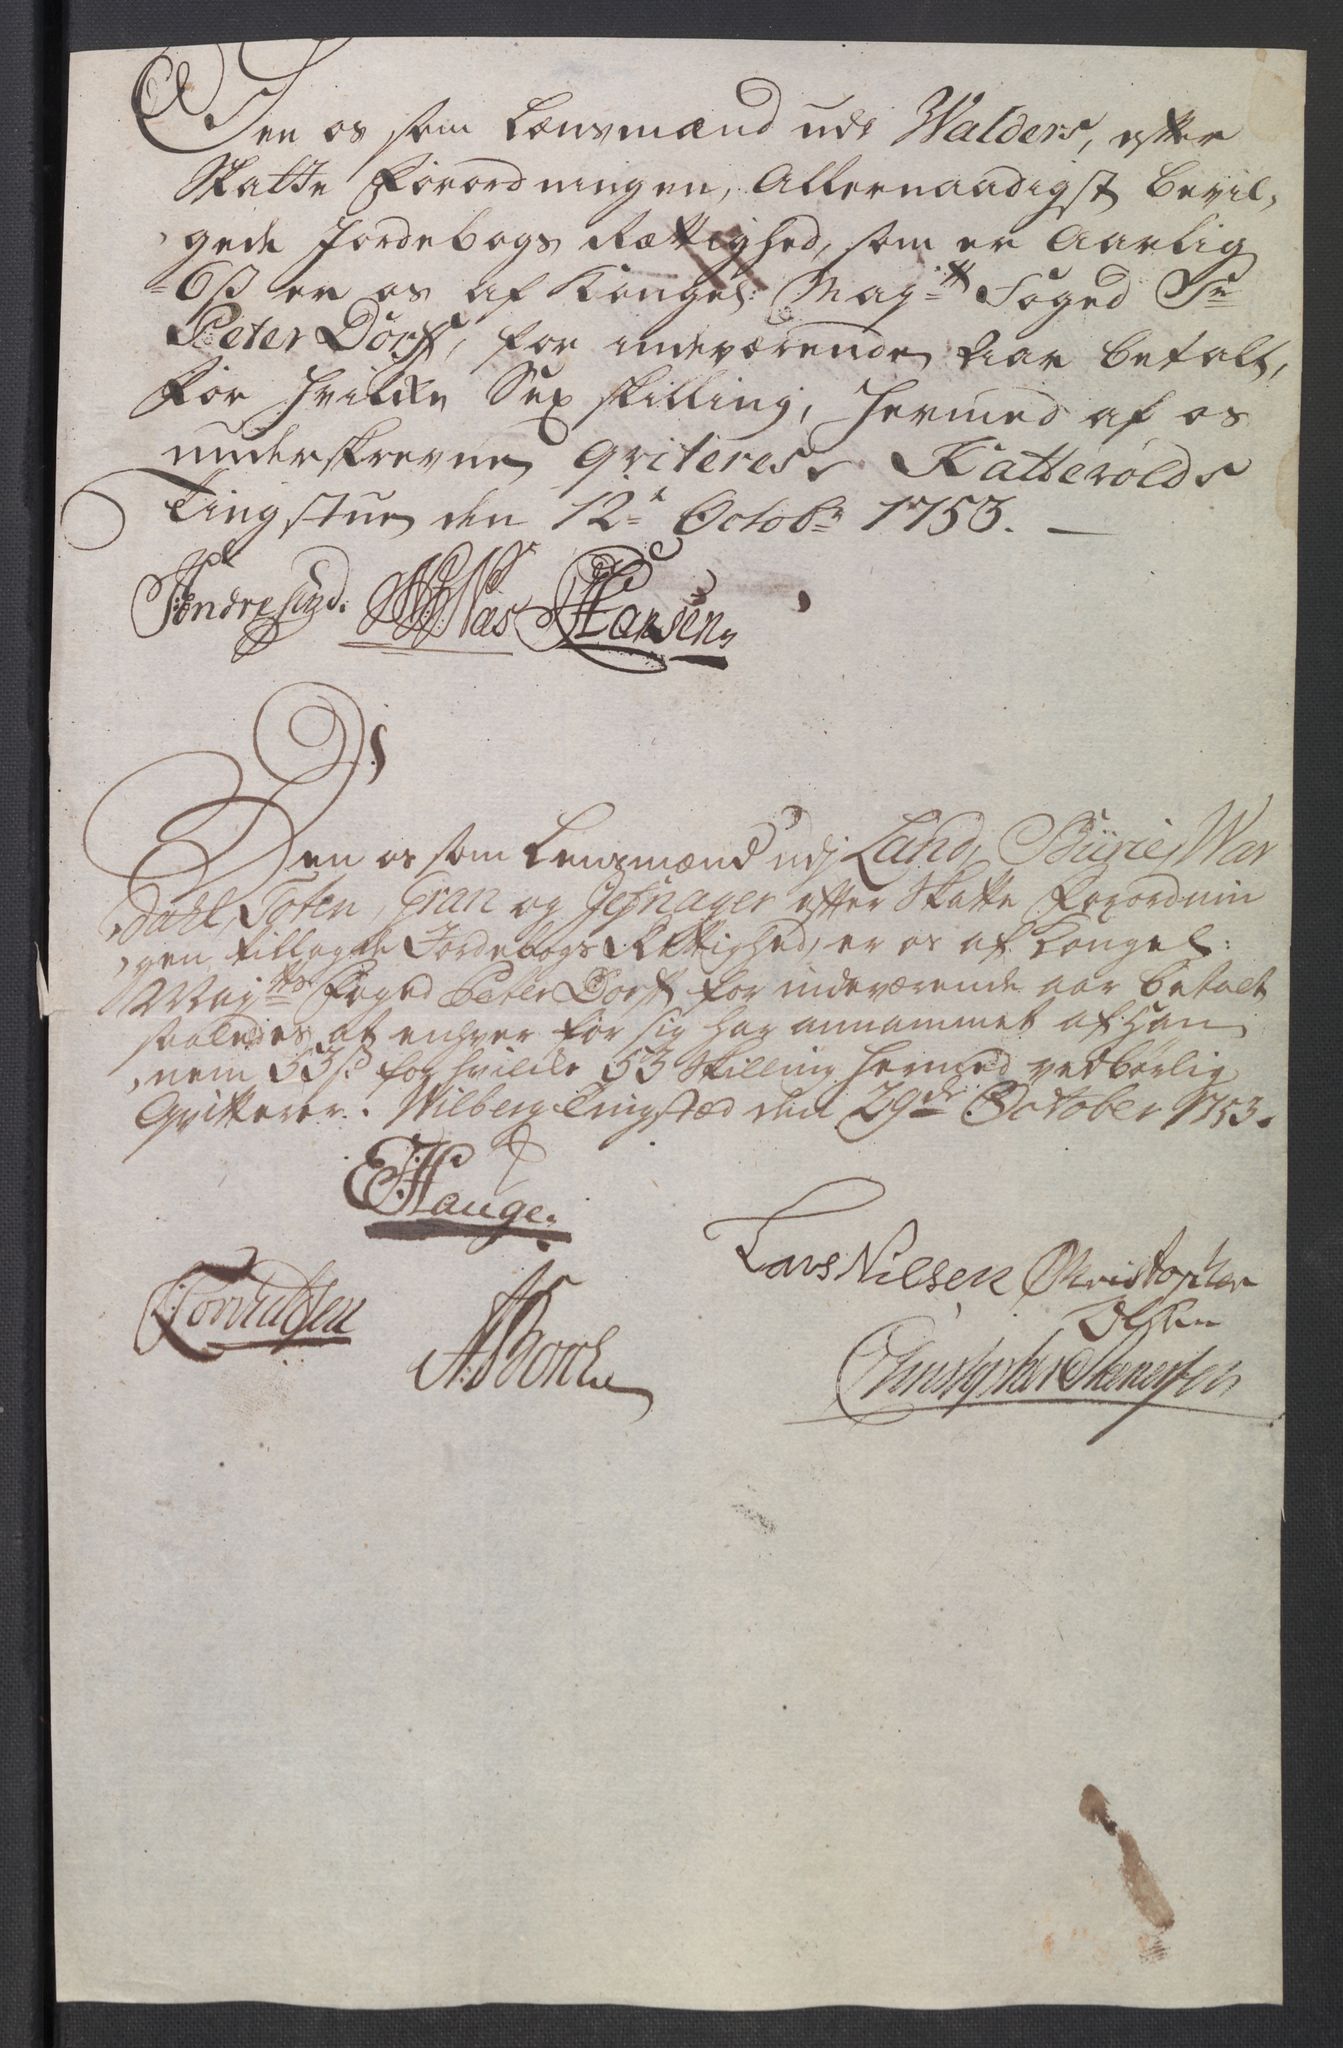 Den os som Lænsmænd udi Walders, efter
Skatte Forordningen, Allernaadigst bevil,
gede Jordebogs Rættighed, som er Aarlig
6 s er os af Kongel: May:tts Foged Sr
Peter Dorff, for indeværende Aar betalt,
For Hvilke Sex skilling, hermed af os
underskrevne qviteres, Katterolds
Tingstue den 12te Octobr 1753. —
Hansen
Den os som Lensmænd udj Land, Büirie, War
dahl, Toten, Gran og Jefnager efter Skatte Forordnin
gen tillagde Jordebogs Rettighed, er os af Kongel:
May:tts Foged Peter Dorff for indeværende aar betalt
saaledes at enhver for sig har annammet af Ham
nem 53 s for hvilke 53 Skilling hermed vedbørlig
Qvitterer. Wilberg Tingstæd den 29de October 1753.
E Hauge
Lars Nilsen Christopher
Olsen
A Borch
Christopher Stenersen